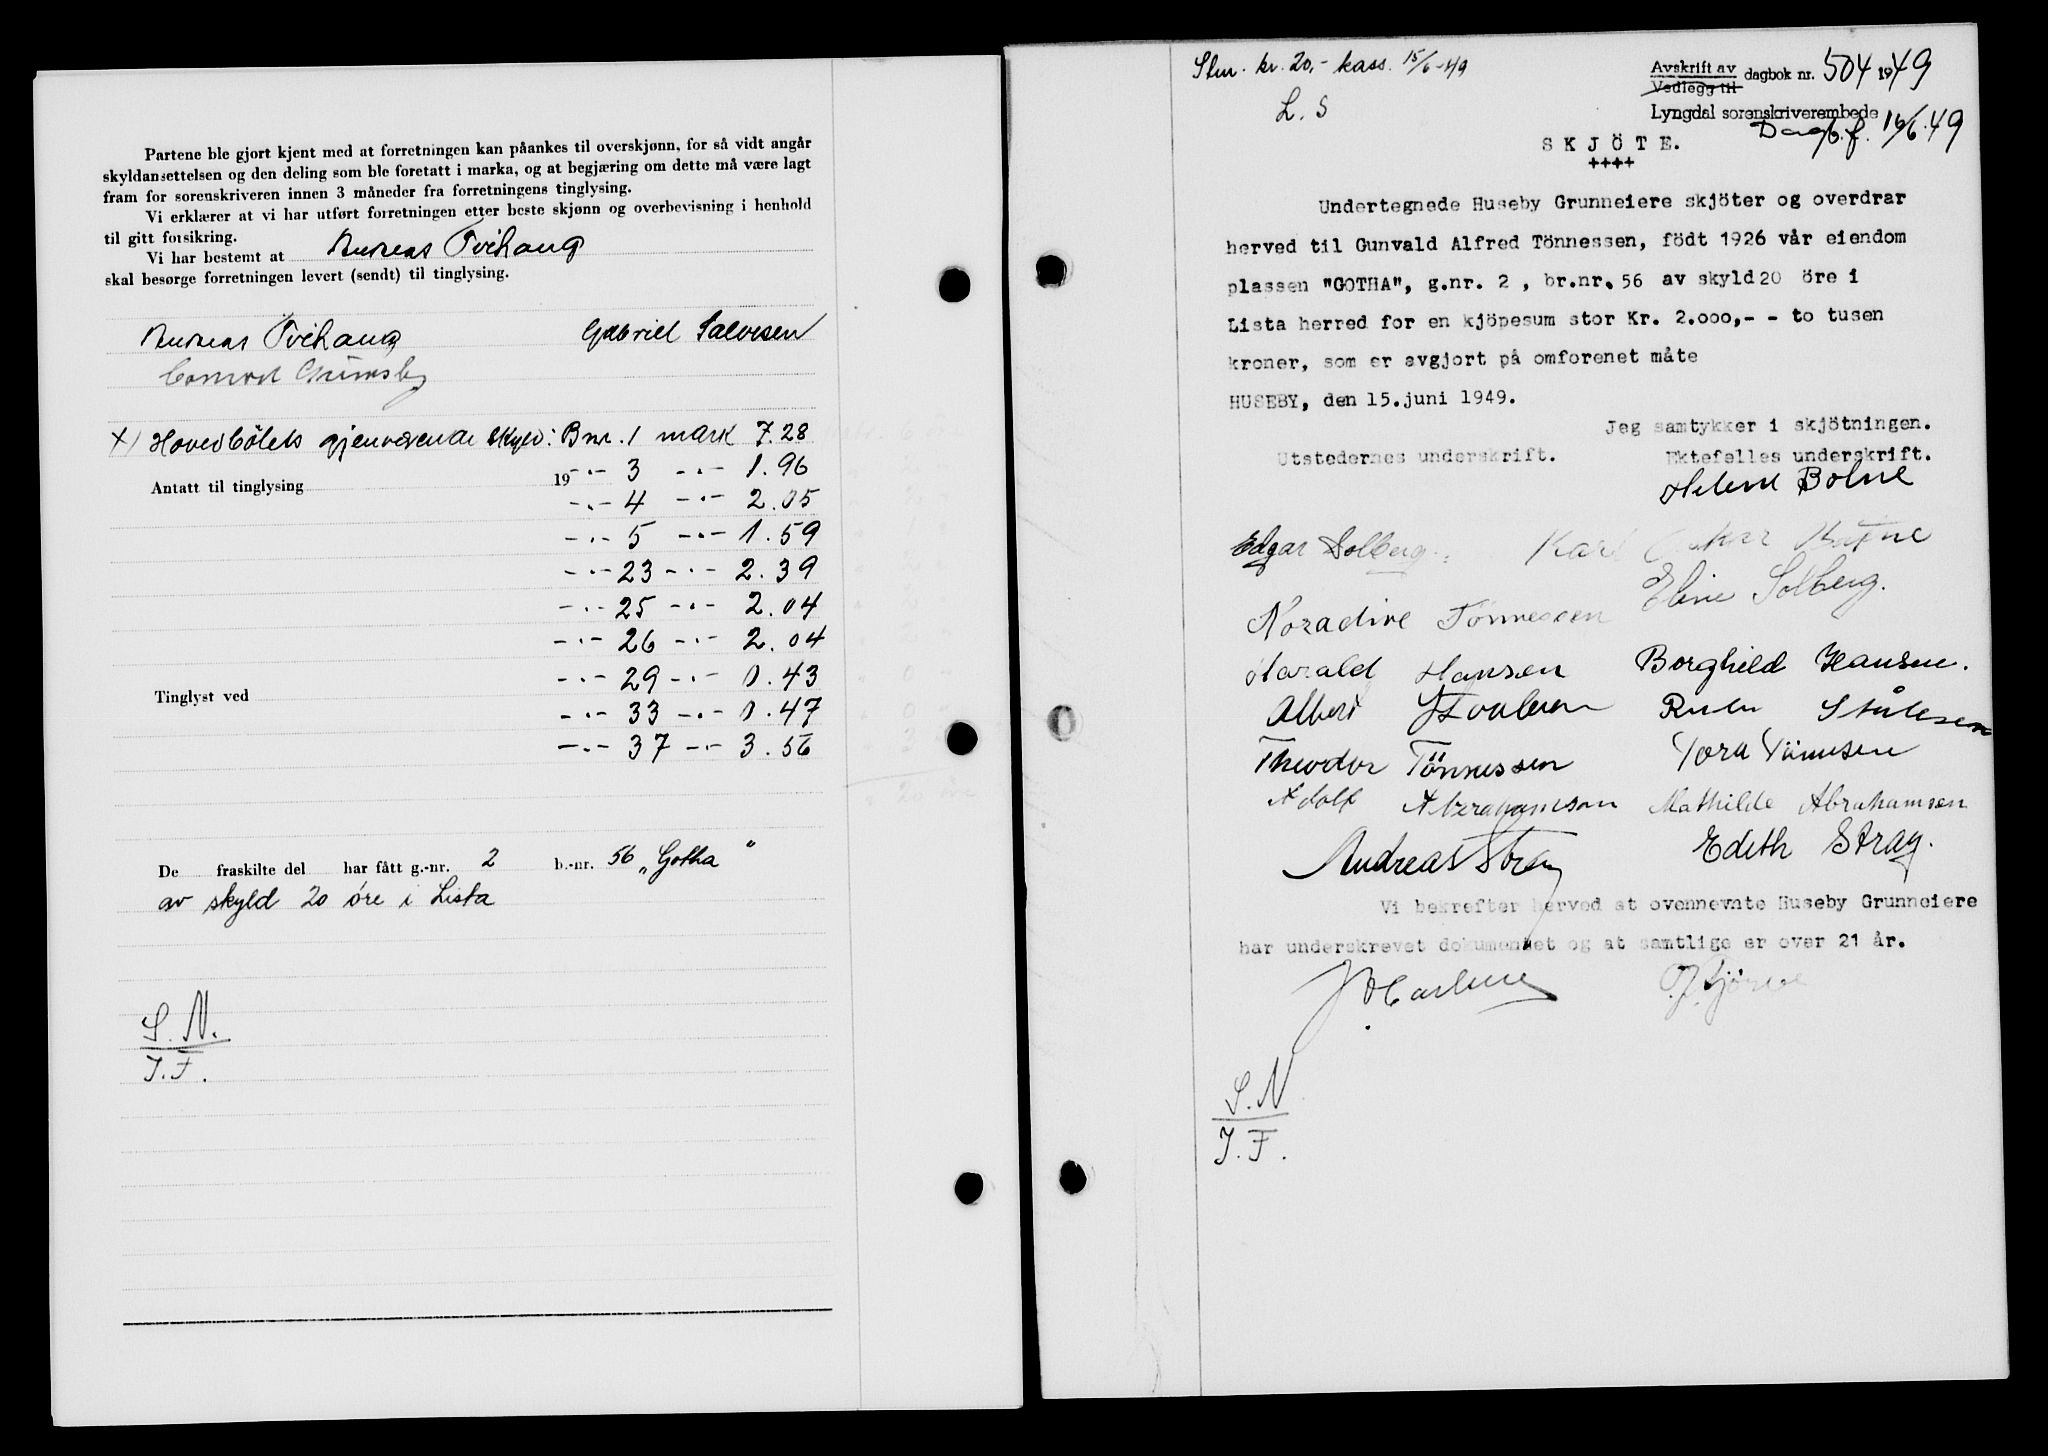 Partene ble gjort kjent med at forretningen kan påankes til overskjønn, for så vidt angår
skyldansettelsen og den deling som ble foretatt i marka, og at begjæring om dette må være lagt
fram for sorenskriveren innen 3 måneder fra forretningens tinglysing.
Vi erklærer at vi har utført forretningen etter beste skjønn og overbevisning i henhold
til gitt forsikring.
Vi har bestemt at Andreas Tvihaug
skal besørge forretningen levert (sendt) til tinglysing.
Andreas Tvihaug Gabriel Salvesen
Conrad Grimsby
X) Hovedbølets gjenværende skyld: Bnr. 1 mark 7.28
19 -"- 3 -"- 1.96
Antatt til tinglysing
-"- 4 -"- 2.05
-"- 5 -"- 1.59
-"- 23 -"- 2.39
-"- 25 -"- 2.04
-"- 26 -"- 2.04
-"- 29 -"- 0.43
Tinglyst ved
-"- 33 -"- 0.47
-"- 37 -"- 3.56
De fraskilte del har fått g.-nr. 2 b.-nr. 56 „Gotha"
av skyld 20 øre i Lista
S. N.
J. F.
Stm. kr. 20,- kass. 15/6-49
L. S
Avskrift av
Vedlegg til
dagbok nr. 504 1949
Lyngdal sorenskriverembede
Dagb.f. 16/6.49
SKJÖTE.
++++
Undertegnede Huseby Grunneiere skjöter og overdrar
herved til Gunvald Alfred Tönnessen, födt 1926 vår eiendom
plassen "GOTHA", g.nr. 2 , br.nr. 56 av skyld 20 öre i
Lista herred for en kjöpesum stor Kr. 2.000,- - to tusen
kroner, som er avgjort på omforenet måte
HUSEBY, den 15.juni 1949.
Jeg samtykker i skjötningen.
Utstedernes underskrift. Ektefelles underskrift.
Edgar Solberg Karl
Eline Solberg.
Noradine Tönnessen
Harald Hansen Borghild Hansen.
Albert Stålesen
Theodor Tönnessen Tora Tönnesen
Adolf Abrahamsen Mathilde Abrahamsen
Andreas Stray Edith Stray.
Vi bekrefter herved at ovennevnte Huseby Grunneiere
har underskrevet dokumentet og at samtlige er over 21 år.
S. N
J. F.